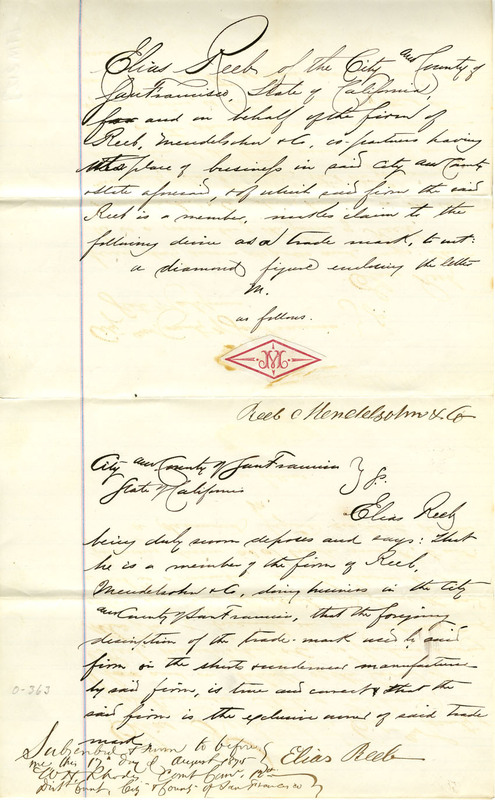 Elias Reeb of the City and County of
San Francisco, State of California,
for and on behalf of the firm of
Reeb, Mendelsohn & Co, co-partners having
place of business in said City and County
& State aforesaid, & of which said firm the said
Reeb is a member, makes claim to the
following device as a trade mark, to wit:
a diamond figure enclosing the letter
M.
as follows.
M
Reeb Mendelsohn & Co
City and County of San Francisco
State of California } ss.
Elias Reeb
being duly sworn deposes and says: that
he is a member of the firm of Reeb,
Mendelsohn & Co, doing business in the City
and County of San Francisco, that the foregoing
description of the trade-mark used by said
firm on the shirts & underwear manufactured
by said firm, is true and correct & that the
said firm is the exclusive owner of said trade
mark
Subscribed & sworn to before
me this 17th day of August 1875
W H Rhodes Court Comr 12th
Dist Court, City & County of San Francisco
Elias Reeb
0-363